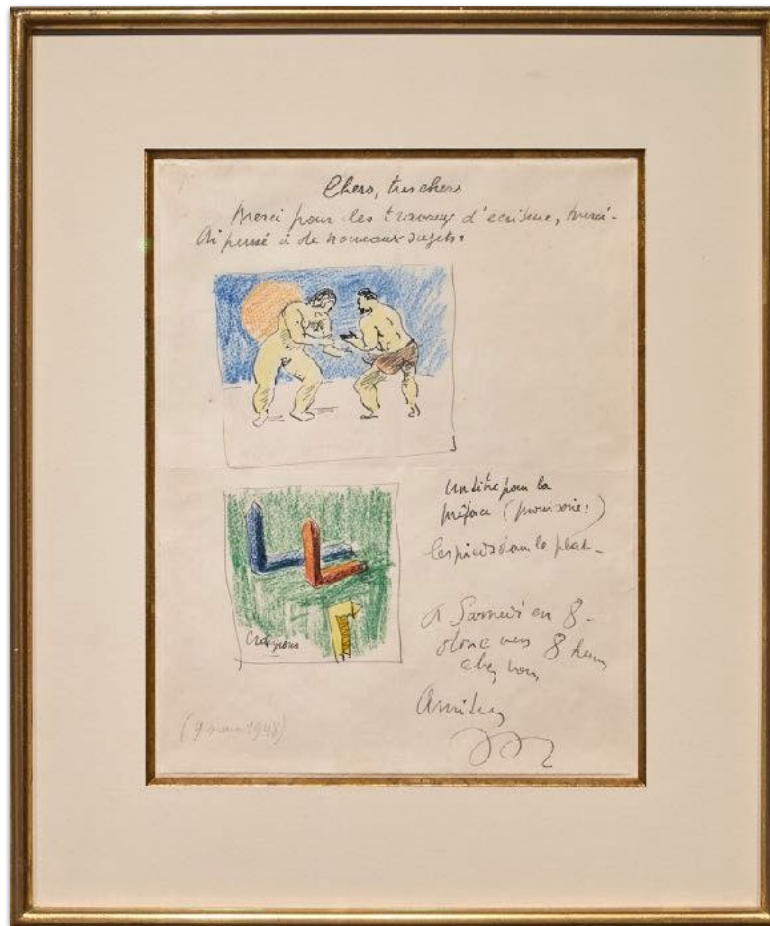 Chers, tres chers
Merci pour les travaux d'ecriture, merci-
Ai pensé à de nouveaux sujets.
Un titre pour la
préface (provisoire!)
les pieds dans le plat-
Crayons
A Samedi en 8-
donc vers 8 heures
chez vous
Amities
(9 mars 1948)